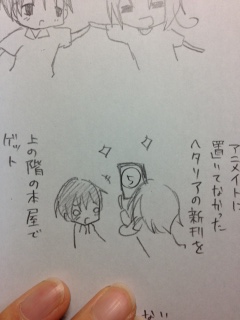 アニメイトに
置いてなかった
ヘタリアの新刊を
上の階の本屋で
ゲット
5
ない